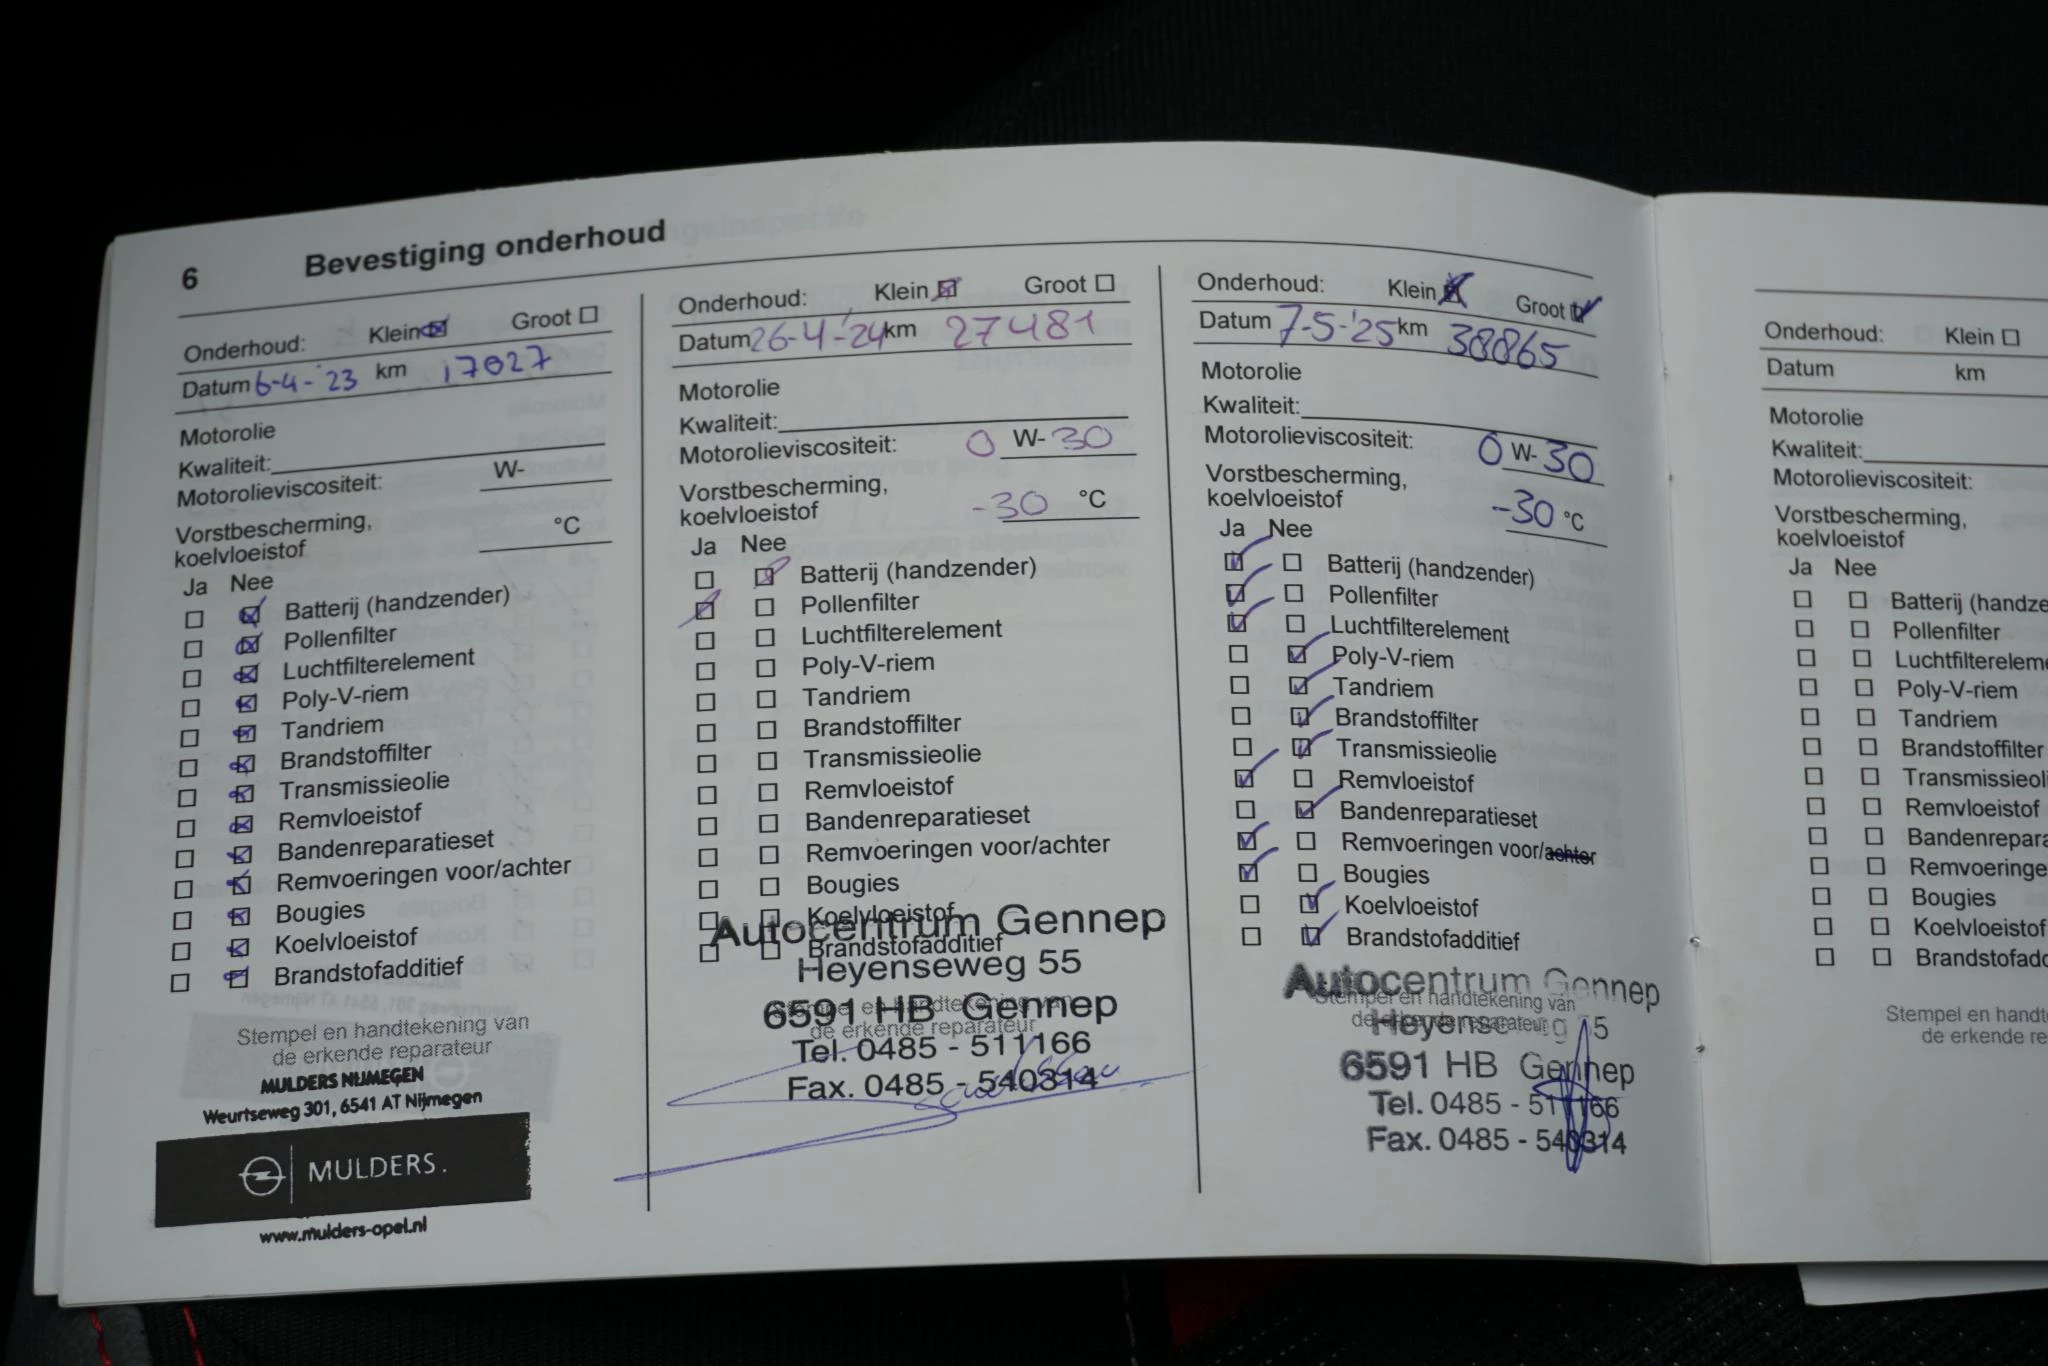 6 Bevestiging onderhoud
Onderhoud: Klein Groot
Datum 6-4-'23 km 17027
Motorolie
Kwaliteit:
Motorolieviscositeit: W-
Vorstbescherming,
koelvloeistof °C
Ja Nee
Batterij (handzender)
Pollenfilter
Luchtfilterelement
Poly-V-riem
Tandriem
Brandstoffilter
Transmissieolie
Remvloeistof
Bandenreparatieset
Remvoeringen voor/achter
Bougies
Koelvloeistof
Brandstofadditief
Stempel en handtekening van
de erkende reparateur
MULDERS NIJMEGEN
Weurtseweg 301, 6541 AT Nijmegen
MULDERS.
www.mulders-opel.nl
Onderhoud: Klein Groot
Datum 26-4-'24 km 27481
Motorolie
Kwaliteit:
Motorolieviscositeit: 0 W-30
Vorstbescherming,
koelvloeistof -30 °C
Ja Nee
Batterij (handzender)
Pollenfilter
Luchtfilterelement
Poly-V-riem
Tandriem
Brandstoffilter
Transmissieolie
Remvloeistof
Bandenreparatieset
Remvoeringen voor/achter
Bougies
Koelvloeistof
Brandstofadditief
Stempel en handtekening van
de erkende reparateur
Autocentrum Gennep
Heyenseweg 55
6591 HB Gennep
Tel. 0485 - 511166
Fax. 0485 - 540314
Onderhoud: Klein Groot
Datum 7-5-'25 km 38865
Motorolie
Kwaliteit:
Motorolieviscositeit: 0 W-30
Vorstbescherming,
koelvloeistof -30 °C
Ja Nee
Batterij (handzender)
Pollenfilter
Luchtfilterelement
Poly-V-riem
Tandriem
Brandstoffilter
Transmissieolie
Remvloeistof
Bandenreparatieset
Remvoeringen voor/achter
Bougies
Koelvloeistof
Brandstofadditief
Stempel en handtekening van
de erkende reparateur
Autocentrum Gennep
6591 HB Gennep
Tel. 0485 - 511166
Fax. 0485 - 540314
Onderhoud: Klein
Datum km
Motorolie
Kwaliteit:
Motorolieviscositeit:
Vorstbescherming,
koelvloeistof
Ja Nee
Batterij (handze
Pollenfilter
Luchtfiltereleme
Poly-V-riem
Tandriem
Brandstoffilter
Transmissieoli
Remvloeistof
Bandenrepara
Remvoeringe
Bougies
Koelvloeistof
Brandstofadd
Stempel en handt
de erkende re